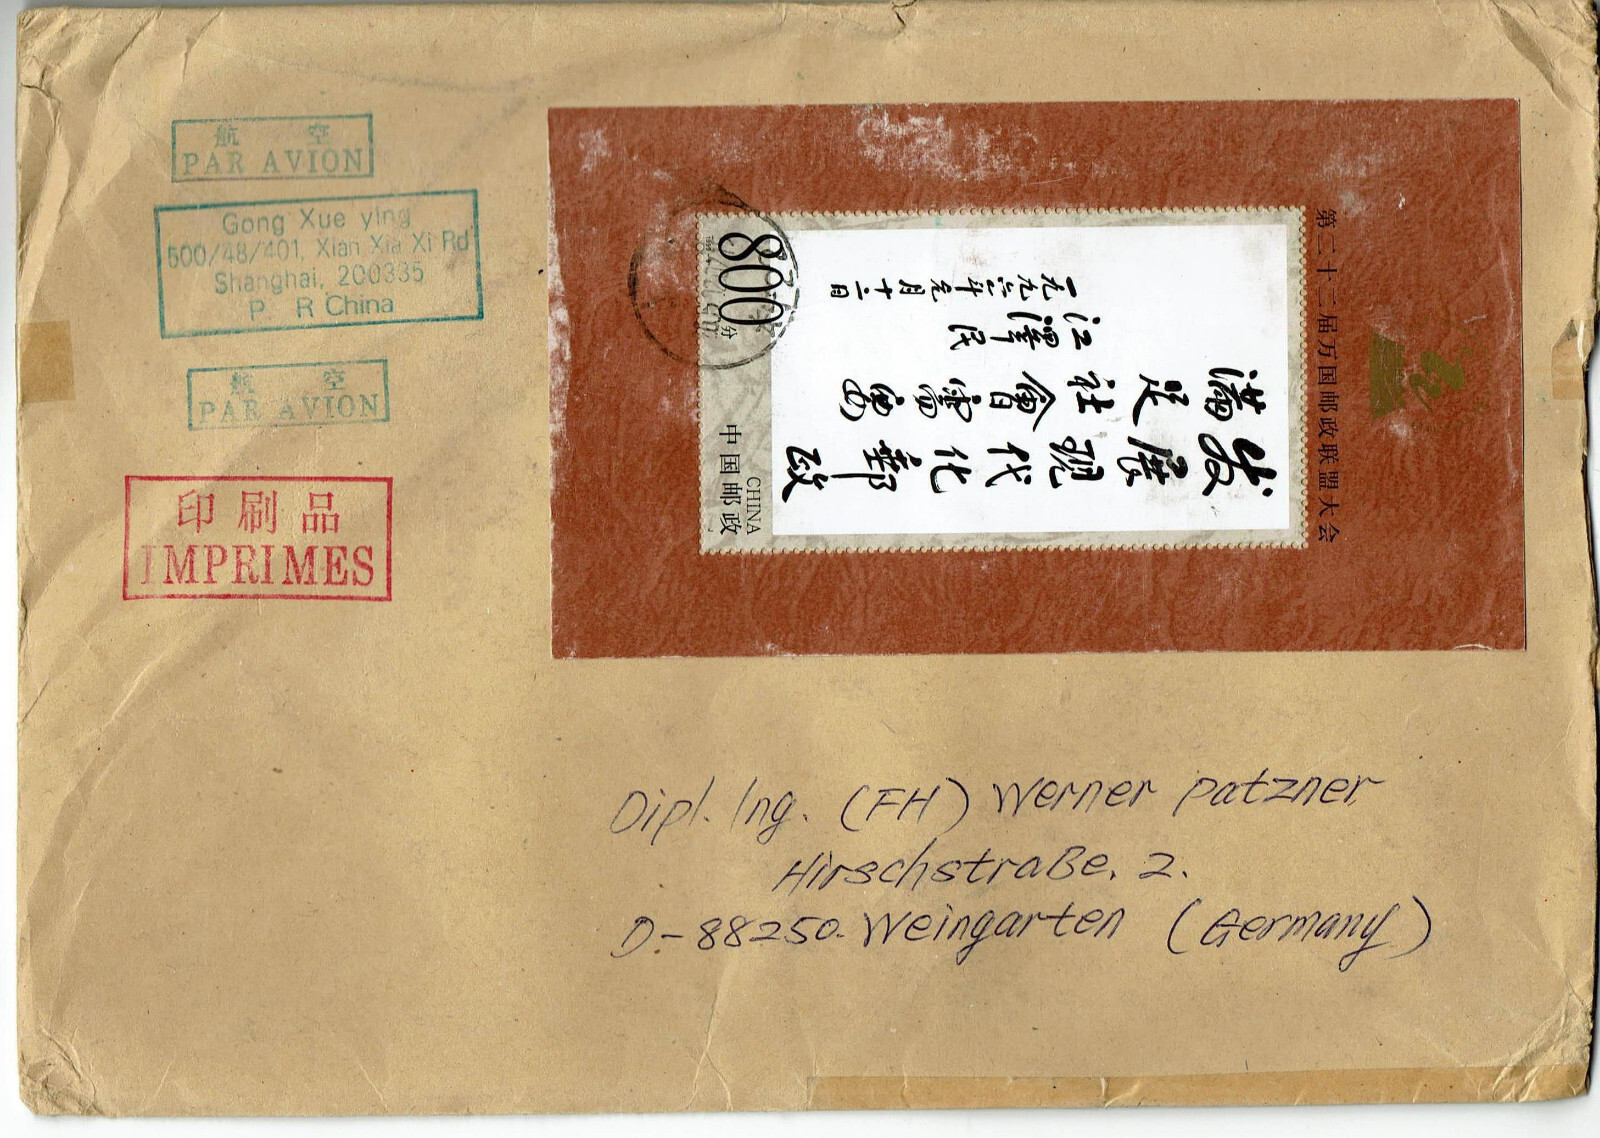 航 空
PAR AVION
Gong Xue ying
500/48/401, Xian Xia Xi Rd
Shanghai, 200335
P. R China
航 空
PAR AVION
印 刷 品
IMPRIMES
第二十二届万国邮政联盟大会
发展现代化邮政
满足社會需要
江澤民
一九九六年元月十二日
800分
中国邮政
CHINA
Dipl. Ing. (FH) Werner Patzner
Hirschstraße. 2.
D-88250 Weingarten (Germany)